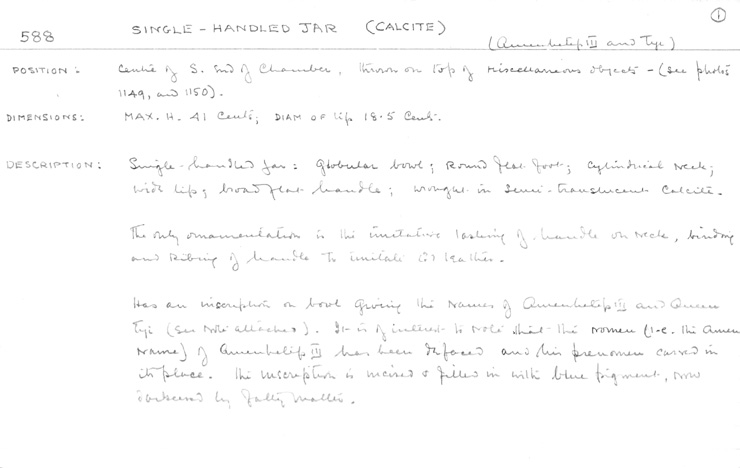 ①
588 SINGLE-HANDLED JAR (CALCITE)
(Amenhetep III and Tyi)
POSITION: Centre of S. End of Chamber, thrown on top of miscellaneous objects - (see photos
1149, and 1150).
DIMENSIONS: MAX. H. 41 Cents; DIAM OF lip 18.5 Cents.
DESCRIPTION: Single-handled Jar: Globular bowl; Round flat foot; cylindrical neck;
wide lip; broad flat handle; wrought in semi-translucent calcite.
The only ornamentation is the imitative lashing of handle on neck, binding
and ribbing of handle to imitate leather.
Has an inscription on bowl giving the names of Amenhetep III and Queen
Tyi (see note attached). It is of interest to note that the nomen (i-e. the Amen
Name) of Amenhetep III has been defaced and his prenomen carved in
its place. The inscription is incised & filled in with blue pigment, now
darkened by fatty matter.